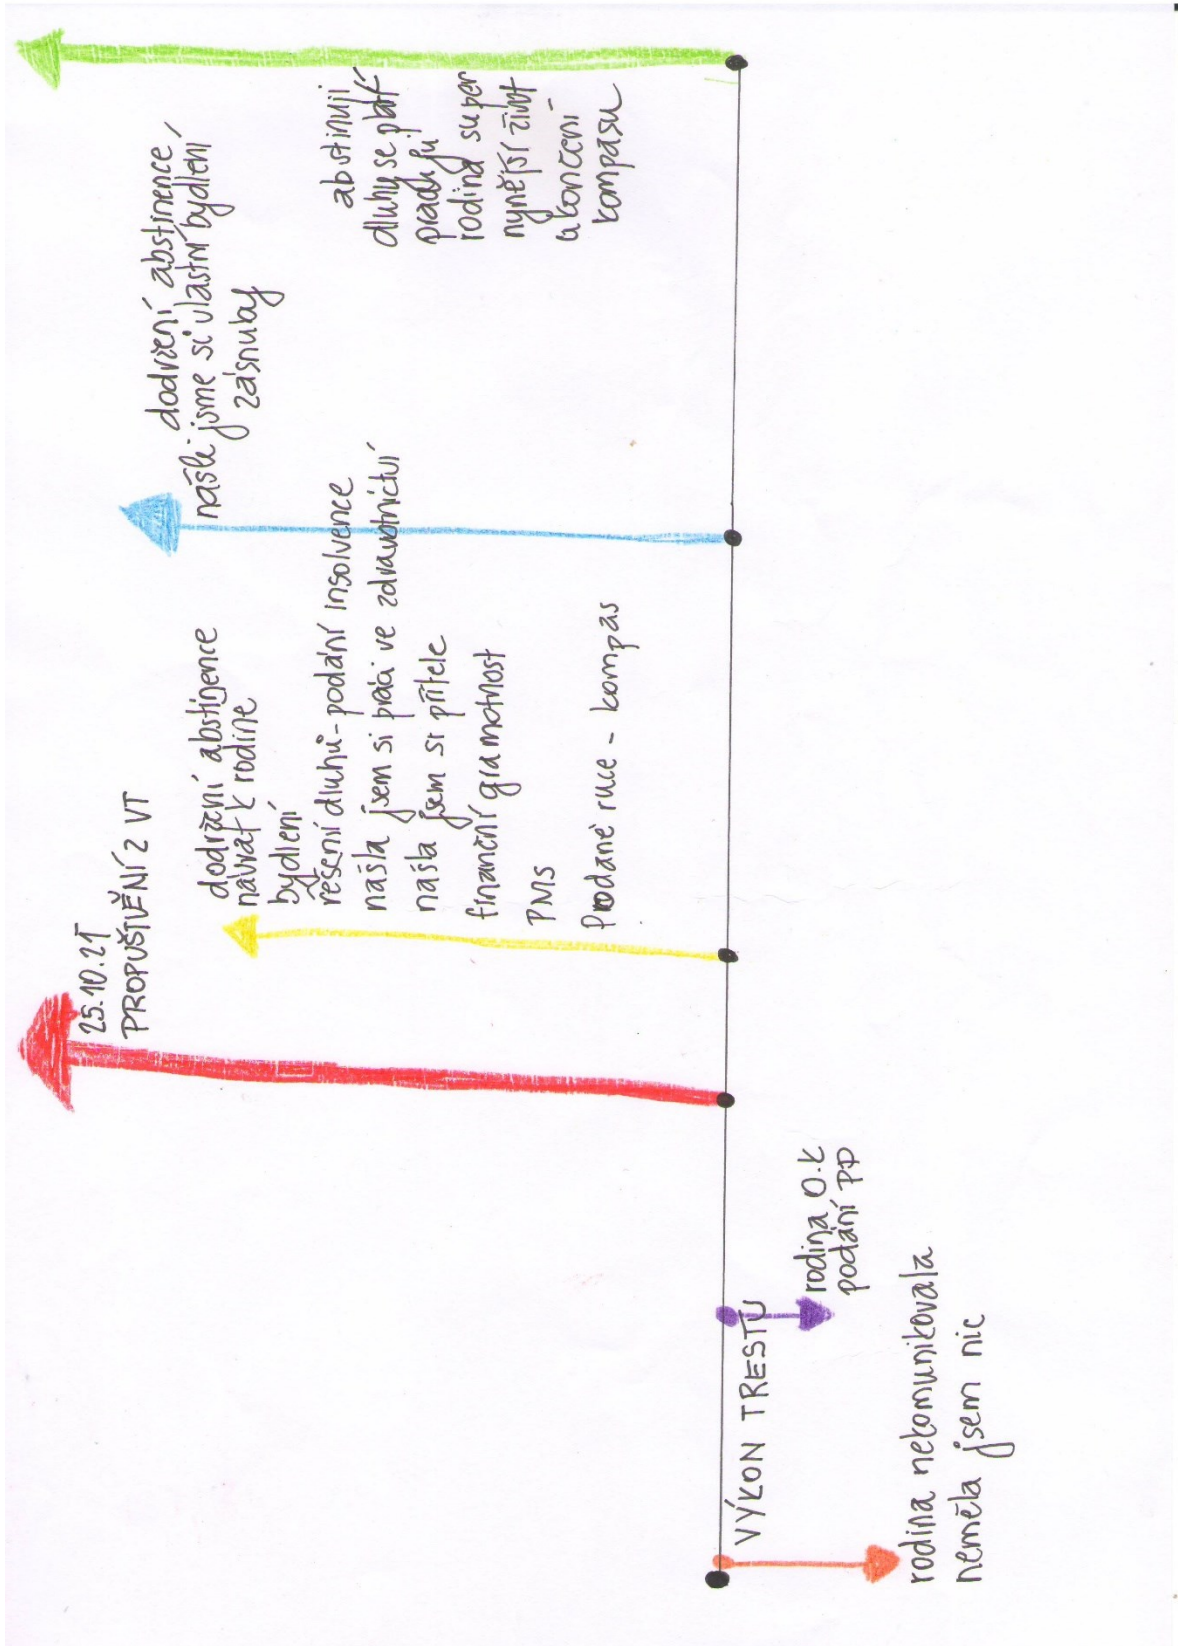 rodina nekomunikovala
neměla jsem nic
VÝKON TRESTU
rodina O.K
podání PP
25.10.21
PROPUŠTĚNÍ Z VT
dodržení abstinence
návrat k rodině
bydlení
řešení dluhů - podání insolvence
našla jsem si práci ve zdravotnictví
našla jsem si přítele
finanční gramotnost
PMS
Podané ruce - kompas
dodržení abstinence
našli jsme si vlastní bydlení
zásnuby
abstinuji
dluhy se platí
pracuji
rodina super
nynější život
ukončení -
kompasu